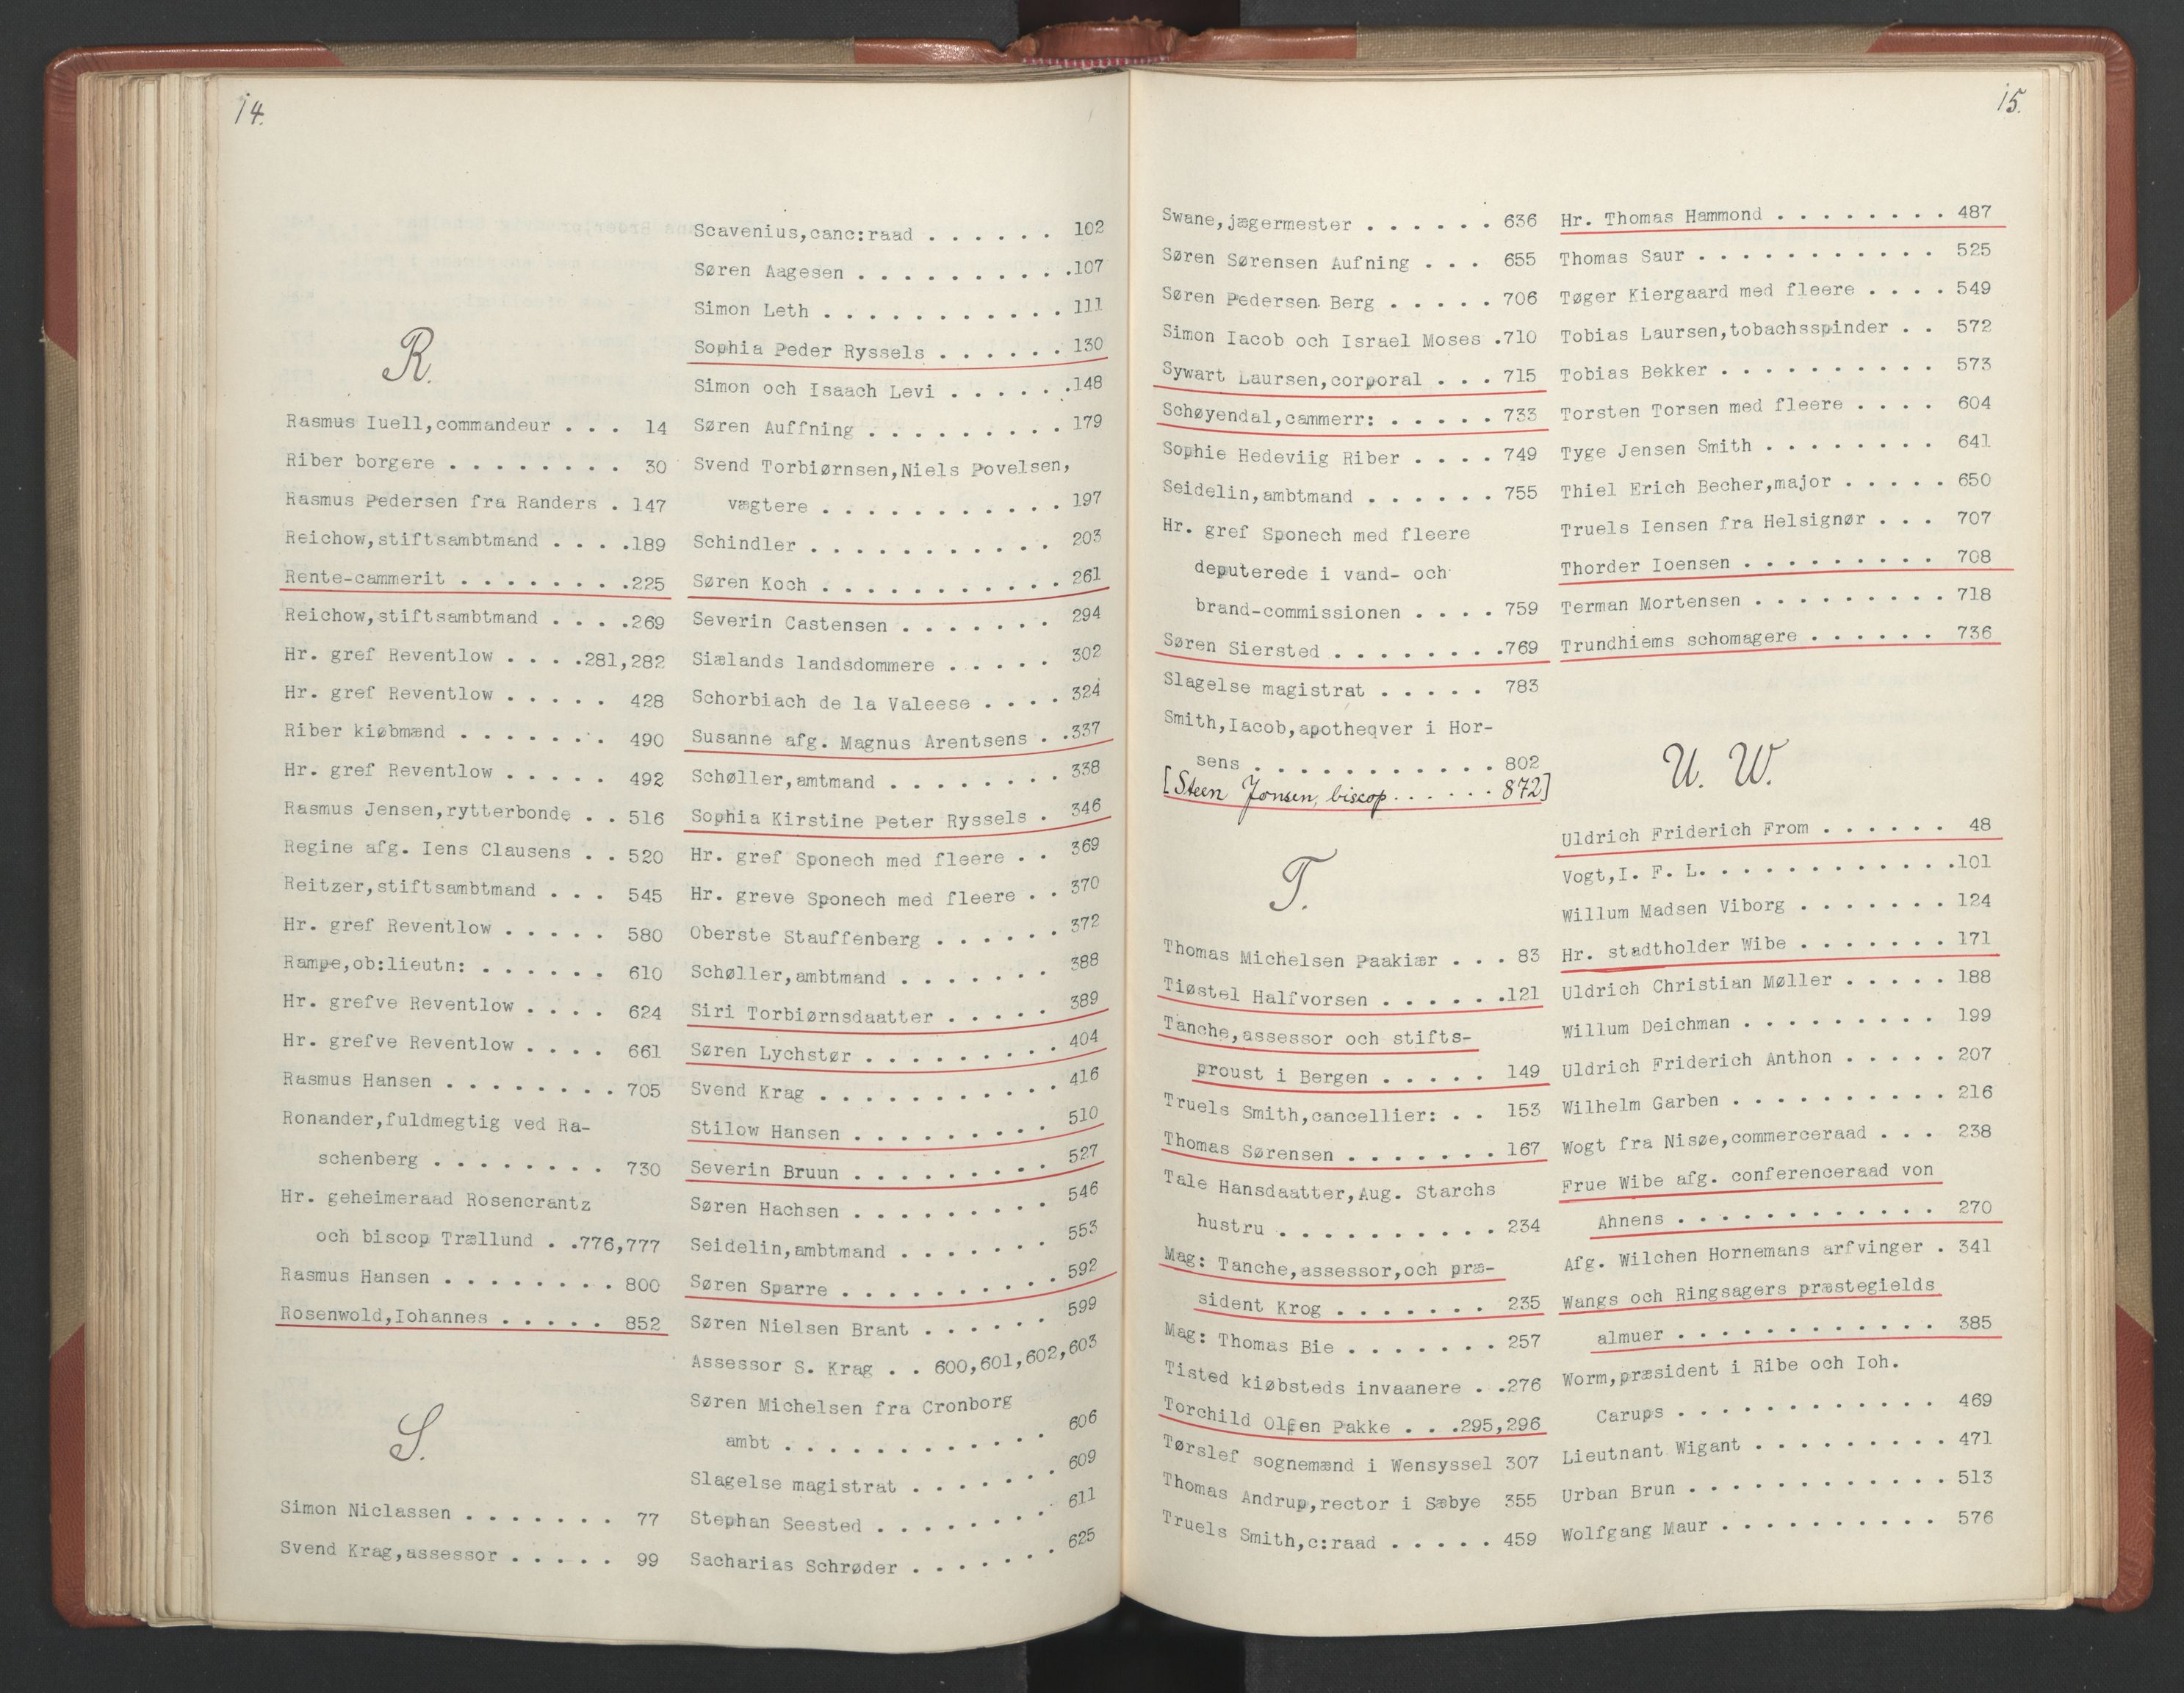 14.
R.
Rasmus Iuell,commandeur . . . 14
Riber borgere . . . . . . . . 30
Rasmus Pedersen fra Randers . 147
Reichow,stiftsambtmand . . . .189
Rente-cammerit . . . . . . . .225
Reichow,stiftsambtmand . . . .269
Hr. gref Reventlow . . . .281,282
Hr. gref Reventlow . . . . . 428
Riber kiøbmænd . . . . . . . 490
Hr. gref Reventlow . . . . . 492
Rasmus Jensen,rytterbonde . . 516
Regine afg. Iens Clausens . . 520
Reitzer,stiftsambtmand . . . 545
Hr. gref Reventlow . . . . . 580
Rampe,ob:lieutn: . . . . . . 610
Hr. grefve Reventlow . . . . 624
Hr. grefve Reventlow . . . . 661
Rasmus Hansen . . . . . . . . 705
Ronander,fuldmegtig ved Ra-
schenberg . . . . . . . . 730
Hr. geheimeraad Rosencrantz
och biscop Trællund . .776,777
Rasmus Hansen . . . . . . . . 800
Rosenwold,Iohannes . . . . . 852
S.
Simon Niclassen . . . . . . . 77
Svend Krag,assessor . . . . . 99
Scavenius,canc:raad . . . . . . 102
Søren Aagesen . . . . . . . . . .107
Simon Leth . . . . . . . . . . . 111
Sophia Peder Ryssels . . . . . . 130
Simon och Isaach Levi . . . . . .148
Søren Auffning . . . . . . . . . 179
Svend Torbiørnsen,Niels Povelsen,
vægtere . . . . . . . . . . . 197
Schindler . . . . . . . . . . . 203
Søren Koch . . . . . . . . . . . 261
Severin Castensen . . . . . . . 294
Siælands landsdommere . . . . . 302
Schorbiach de la Valeese . . . . 324
Susanne afg. Magnus Arentsens . .337
Schøller,amtmand . . . . . . . . 338
Sophia Kirstine Peter Ryssels . 346
Hr. gref Sponech med fleere . . 369
Hr. greve Sponech med fleere . . 370
Oberste Stauffenberg . . . . . . 372
Schøller,ambtmand . . . . . . . 388
Siri Torbiørnsdaatter . . . . . 389
Søren Lychstør . . . . . . . . . 404
Svend Krag . . . . . . . . . . . 416
Stilow Hansen . . . . . . . . . 510
Severin Bruun . . . . . . . . . 527
Søren Hachsen . . . . . . . . . 546
Seidelin,ambtmand . . . . . . . 553
Søren Sparre . . . . . . . . . . 592
Søren Nielsen Brant . . . . . . 599
Assessor S. Krag . . 600,601,602,603
Søren Michelsen fra Cronborg
ambt . . . . . . . . . . . . 606
Slagelse magistrat . . . . . . . 609
Stephan Seested . . . . . . . . 611
Sacharias Schrøder . . . . . . . 625
15.
Swane,jægermester . . . . . . 636
Søren Sørensen Aufning . . . 655
Søren Pedersen Berg . . . . . 706
Simon Iacob och Israel Moses .710
Sywart Laursen,corporal . . . 715
Schøyendal,cammerr: . . . . . 733
Sophie Hedeviig Riber . . . . 749
Seidelin,ambtmand . . . . . . 755
Hr. gref Sponech med fleere
deputerede i vand- och
brand-commissionen . . . . 759
Søren Siersted . . . . . . . .769
Slagelse magistrat . . . . . 783
Smith,Iacob,apotheqver i Hor-
sens . . . . . . . . . . . 802
[Steen Jonsen, biscop . . . . . . 872]
T.
Thomas Michelsen Paakiær . . . 83
Tiøstel Halfvorsen . . . . . .121
Tanche,assessor och stifts-
proust i Bergen . . . . . 149
Truels Smith,cancellier: . . 153
Thomas Sørensen . . . . . . . 167
Tale Hansdaatter,Aug. Starchs
hustru . . . . . . . . . . 234
Mag: Tanche,assessor,och præ-
sident Krog . . . . . . . 235
Mag: Thomas Bie . . . . . . . 257
Tisted kiøbsteds invaanere . .276
Torchild Olsen Pakke . . .295,296
Tørslef sognemænd i Wensyssel 307
Thomas Andrup,rector i Sæbye 355
Truels Smith,c:raad . . . . . 459
Hr. Thomas Hammond . . . . . . . . 487
Thomas Saur . . . . . . . . . . . 525
Tøger Kiergaard med fleere . . . . 549
Tobias Laursen,tobachsspinder . . 572
Tobias Bekker . . . . . . . . . . 573
Torsten Torsen med fleere . . . . 604
Tyge Jensen Smith . . . . . . . . 641
Thiel Erich Becher,major . . . . . 650
Truels Iensen fra Helsignør . . . 707
Thorder Ioensen . . . . . . . . . 708
Terman Mortensen . . . . . . . . . 718
Trundhiems schomagere . . . . . . 736
U. W.
Uldrich Friderich From . . . . . . 48
Vogt,I. F. L. . . . . . . . . . . .101
Willum Madsen Viborg . . . . . . . 124
Hr. stadtholder Wibe . . . . . . . 171
Uldrich Christian Møller . . . . . 188
Willum Deichman . . . . . . . . . 199
Uldrich Friderich Anthon . . . . . 207
Wilhelm Garben . . . . . . . . . . 216
Wogt fra Nisøe,commerceraad . . . 238
Frue Wibe afg. conferenceraad von
Ahnens . . . . . . . . . . . . 270
Afg. Wilchen Hornemans arfvinger . 341
Wangs och Ringsagers præstegields
almuer . . . . . . . . . . . . 385
Worm,præsident i Ribe och Ioh.
Carups . . . . . . . . . . . . 469
Lieutnant Wigant . . . . . . . . . 471
Urban Brun . . . . . . . . . . . . 513
Wolfgang Maur . . . . . . . . . . 576